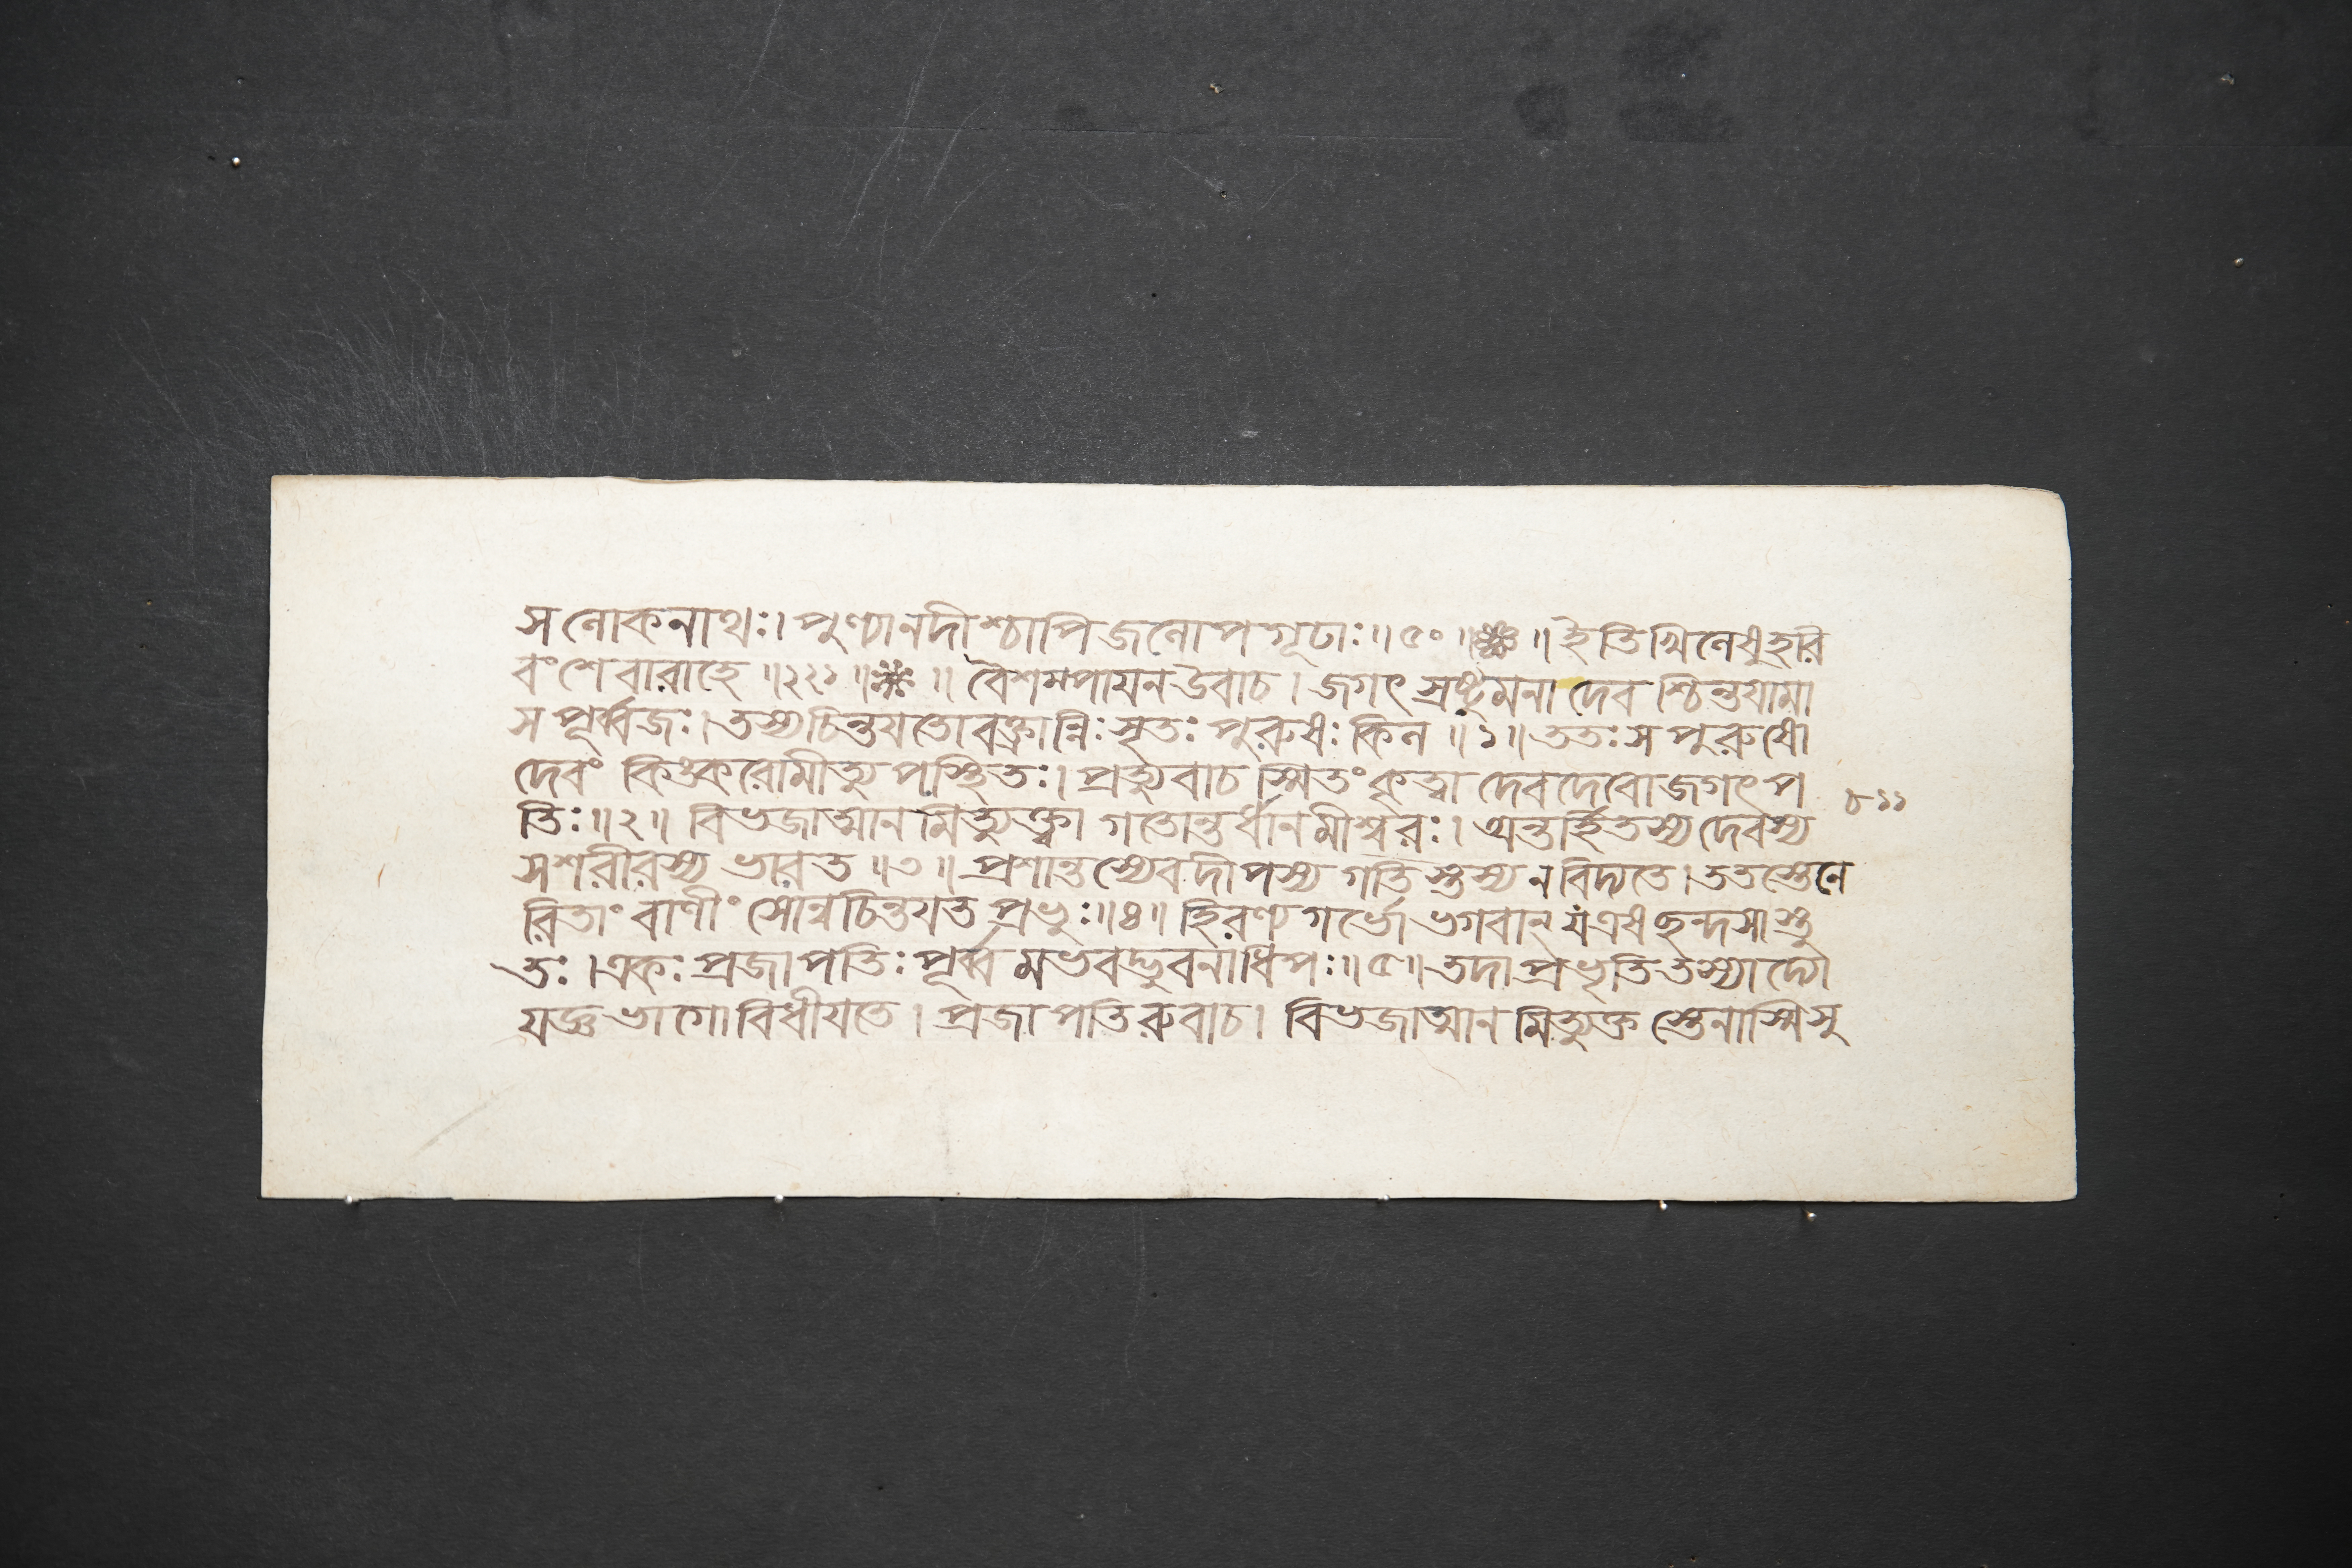 স লোকনাথঃ। পুণ্যানদীশ্চাপি জলোপগূঢাঃ॥ ৫০ ॥ ❈ ॥ ইতি খিলেষু হরি
বংশে বারাহে ॥ ২২১ ॥ ❈ ॥ বৈশম্পায়ন উবাচ । জগৎ স্রষ্টুমনা দেব শ্চিন্তয়ামা
স পূর্ব্বজঃ। তস্য চিন্তয়তো বক্ত্রান্নিঃসৃতঃ পুরুষঃ কিল ॥ ১ ॥ ততঃ স পুরুষো
দেবং কিঙ্করোমীত্যুপস্থিতঃ। প্রত্যুবাচ স্মিতং কৃত্বা দেবদেবো জগৎপ
তিঃ॥ ২ ॥ বিভজাত্মানমিত্যুক্ত্বা গতোন্তর্ধানমীশ্বরঃ। অন্তর্হিতস্য দেবস্য
সশরীরস্য ভারত ॥ ৩ ॥ প্রশান্তস্যেব দীপস্য গতিস্তস্য ন বিদ্যতে। ততস্তেনে
রিতাং বাণীং সোন্বচিন্তয়ত প্রভুঃ॥ ৪ ॥ হিরণ্যগর্ভো ভগবান্ য এষ ছন্দসাস্তু
তঃ । একঃ প্রজাপতিঃ পূর্ব্বমভবদ্ভুবনাধিপঃ॥ ৫ ॥ তদাপ্রভৃতি তস্যাদ্যো
যজ্ঞভাগো বিধীয়তে । প্রজাপতিরুবাচ। বিভজাত্মানমিত্যুক্তস্তেনাস্মি সু
৮১১